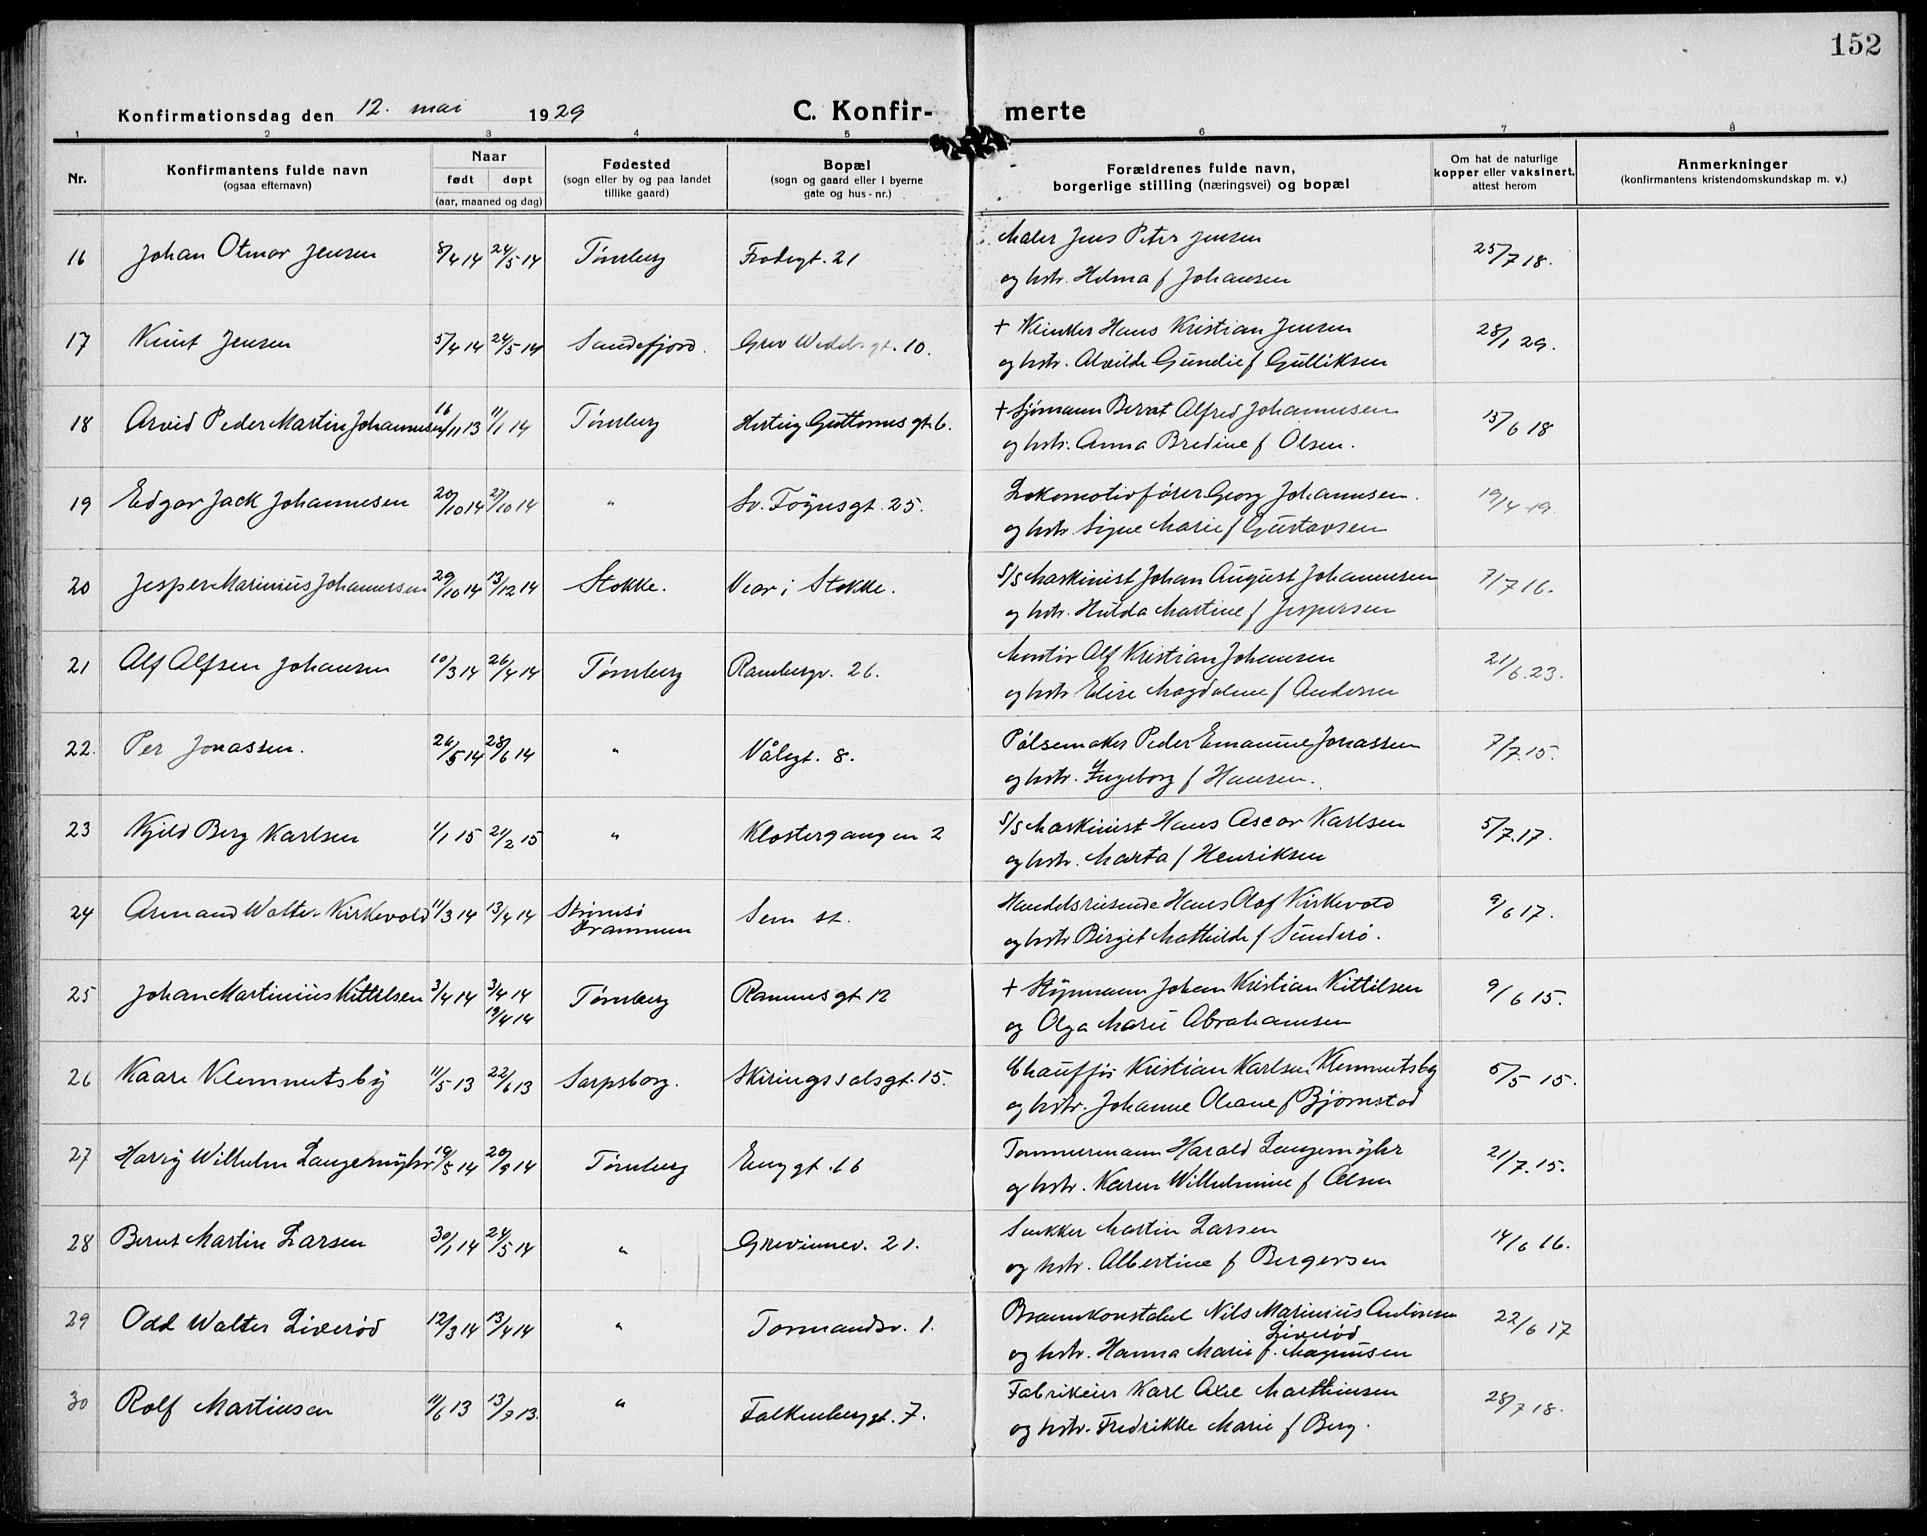 152
Konfirmationsdag den 12. mai 1929 C. Konfir- merte
1 2 3 4 5 6 7 8
Nr. Konfirmantens fulde navn (ogsaa efternavn) Naar født døpt (aar, maaned og dag) Fødested (sogn eller by og paa landet tillike gaard) Bopæl (sogn og gaard eller i byerne gate og hus-nr.) Forældrenes fulde navn, borgerlige stilling (næringsvei) og bopæl Om hat de naturlige kopper eller vaksinert, attest herom Anmerkninger (konfirmantens kristendomskundskap m. v.)
16 Johan Otmar Jensen 8/4 14 24/5 14 Tønsberg Frodegt. 21 Maler Jens Peter Jensen 25/7 18.
og hstr. Helma f Johansen
17 Knut Jensen 5/4 14 24/5 14 Sandefjord. Grev Wedelsgt. 10. + Hans Kristian Jensen 28/1 29.
og hstr. Alvilde Gundie f Gulliksen
18 Arvid Peder Martin Johannesen 16/11 13 11/1 14 Tønsberg Hertug Guttorms gt. 6. + Sjømann Bernt Alfred Johannesen 13/6 18
og hstr. Anna Bredine f Olsen.
19 Edgar Jack Johannesen 20/10 14 27/10 14 " Sv. Føynsgt. 25. Lokomotivfører Georg Johannesen. 19/4 19.
og hstr. Signe Marie f Gustavsen
20 Jesper Marinius Johannessen 29/10 14 13/12 14 Stokke. Vear i Stokke. S/S Maskinist Johan August Johannesen 7/7 16.
og hstr. Hulda Martine f Jespersen
21 Alf Alfsen Johansen 10/3 14 26/4 14 Tønsberg Rambergv. 26. Montör Alf Kristian Johansen 21/6. 23.
og hstr. Elise Magdalene f Andersen
22. Per Jonassen. 26/5 14 28/6 14 " Vålegt. 8. Pölsemaker Peder Emanuel Jonassen 7/7. 15.
og hstr. Ingeborg f Hansen.
23 Kjeld Berg Karlsen 1/1 15 21/2 15 " Klostergangen 2 S/S Maskinist Hans Oscar Karlsen 5/7. 17.
og hstr. Marta f Henriksen
24 Armand Walter Kirkevold 11/3 14 13/4 14 Strömsö Sem st. Handelsreisende Hans Olaf Kirkevold 9/6 17.
Drammen og hstr. Birget Mathilde f Sunderö.
25 Johan Martinius Kittilsen 3/4 14 3/4 14 Tønsberg Ramnes gt 12 + Styrmann Johan Kristian Kittilsen 9/6 15.
19/4 14 og Olga Marie Abrahamsen
26 Kaare Klemmetsby 11/5 13 22/6 13 Sarpsborg. Skiringssalsgt. 15. Chauffør Kristian Karlsen Klemmetsby 5/5 15.
og hstr. Johanne Oleane f Bjørnstad
27 Harry Wilhelm Langemyhr 19/5 14 20/9 14 Tønsberg Enggt. 66 Tømmermann Harald Langemyhr 21/7. 15.
og hstr. Karen Wilhelmine f Olsen
28 Bernt Martin Larsen 30/1 14 24/5 14 " Grevinnev. 21. Snekker Martin Larsen 14/6 16.
og hstr. Albertine f Bergersen
29 Odd Walter Liverød 12/3 14 13/4 14 " Tormandsv. 1. Brannkonstabel Nils Marinius Antonsen 22/6 17
Liverød
og hstr. Hanna Marie f. Magnusen
30 Rolf Martinsen 11/6 13 13/7 13. " Falkenberggt. 7. Fabrikeier Karl Axel Marthinsen 28/7 18.
og hstr. Fredrikke Marie f Berg.